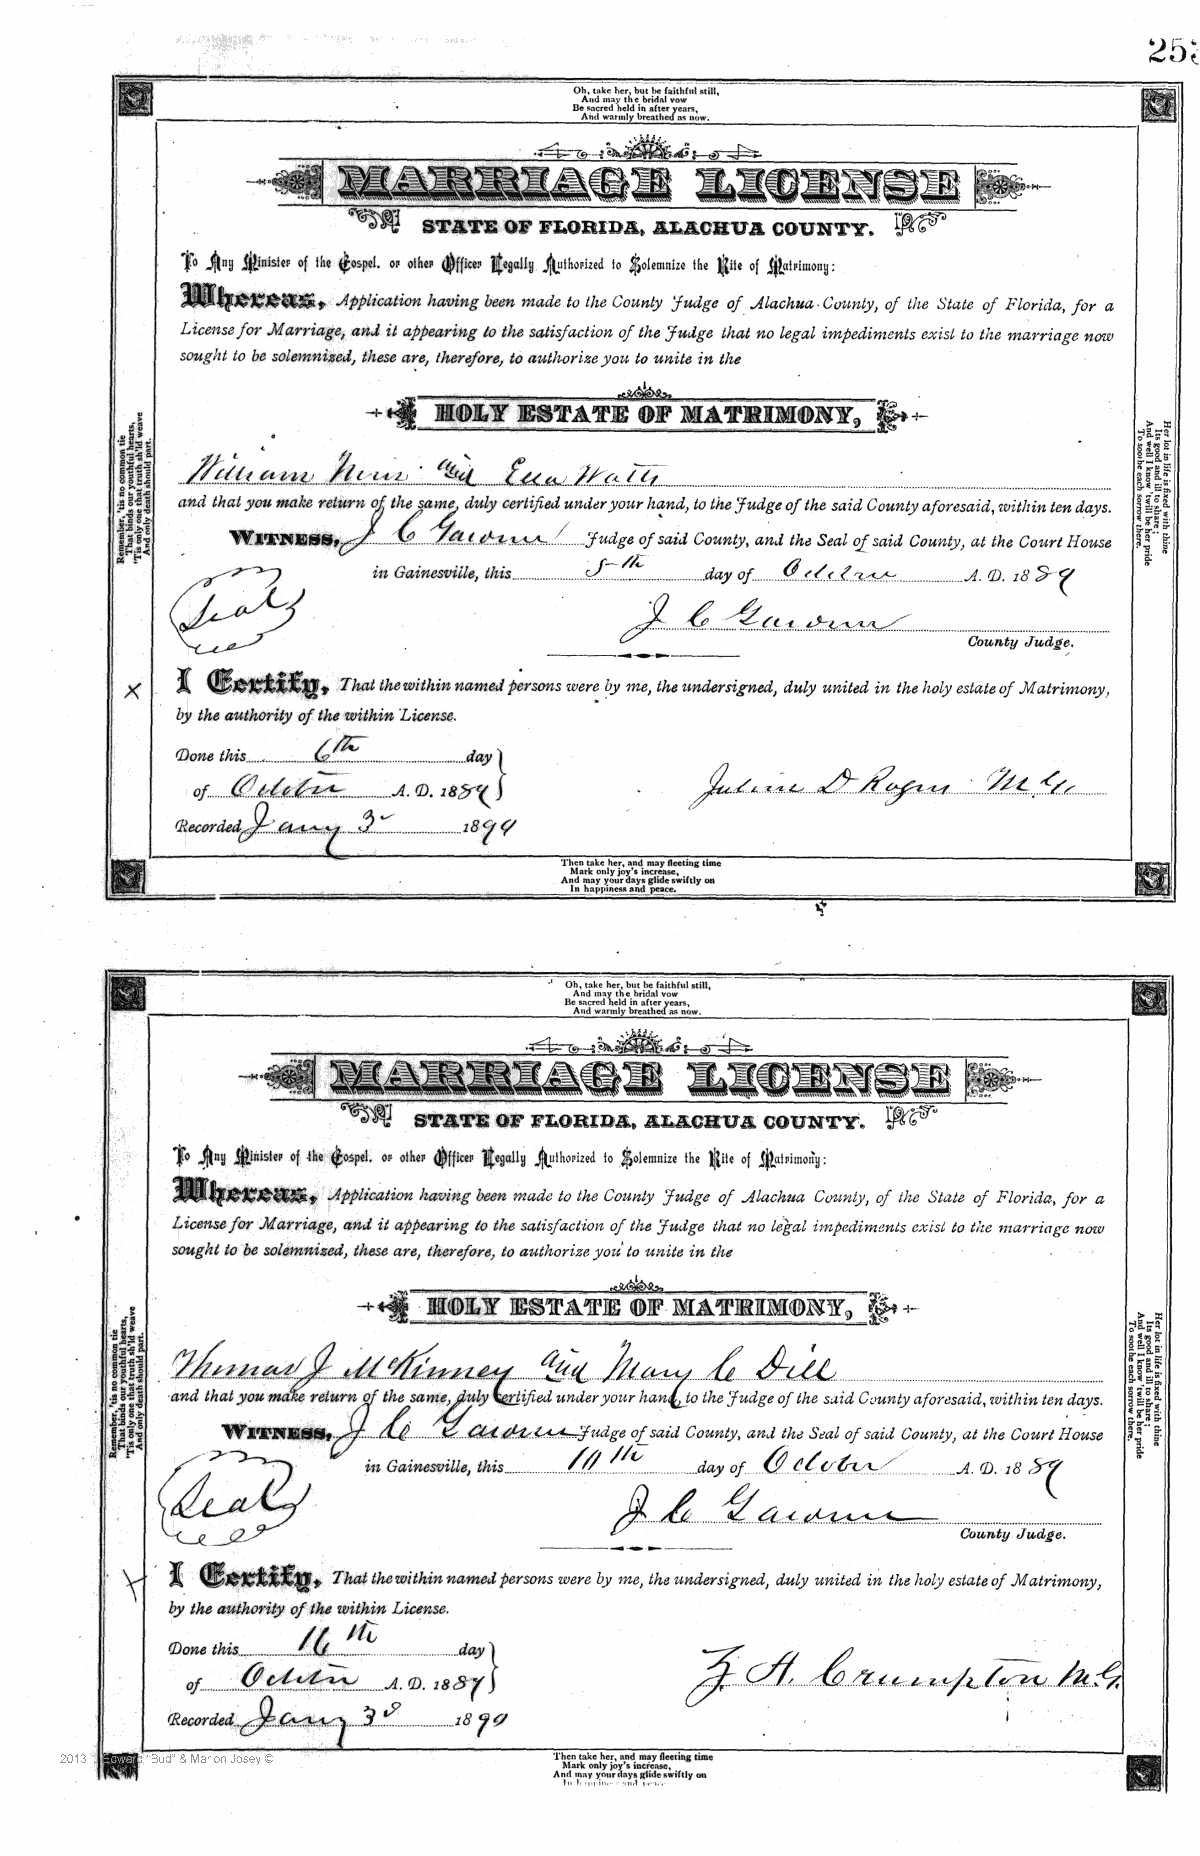 253
Oh, take her, but be faithful still,
And may the bridal vow
Be sacred held in after years,
And warmly breathed as now.
MARRIAGE LICENSE
STATE OF FLORIDA, ALACHUA COUNTY.
To Any Minister of the Gospel, or other Officer Legally Authorized to Solemnize the Rite of Matrimony:
Whereas, Application having been made to the County Judge of Alachua County, of the State of Florida, for a
License for Marriage, and it appearing to the satisfaction of the Judge that no legal impediments exist to the marriage now
sought to be solemnized, these are, therefore, to authorize you to unite in the
HOLY ESTATE OF MATRIMONY,
William and Eua Watts
and that you make return of the same, duly certified under your hand, to the Judge of the said County aforesaid, within ten days.
WITNESS, J C Judge of said County, and the Seal of said County, at the Court House
in Gainesville, this 5th day of October A. D. 1889
Seal
J C
County Judge.
X
I Certify, That the within named persons were by me, the undersigned, duly united in the holy estate of Matrimony,
by the authority of the within License.
Done this 6th day
of October A. D. 1889
D Rogers M.G.
Recorded Jany 3d 1890
Remember, 'tis no common tie
That binds our youthful hearts,
'Tis only one that truth sh'ld weave
And only death should part.
Her lot in life is fixed with thine
Its good and ill to share;
And well I know 'twill be her pride
To soothe each sorrow there.
Then take her, and may fleeting time
Mark only joy's increase,
And may your days glide swiftly on
In happiness and peace.
Oh, take her, but be faithful still,
And may the bridal vow
Be sacred held in after years,
And warmly breathed as now.
MARRIAGE LICENSE
STATE OF FLORIDA, ALACHUA COUNTY.
To Any Minister of the Gospel, or other Officer Legally Authorized to Solemnize the Rite of Matrimony:
Whereas, Application having been made to the County Judge of Alachua County, of the State of Florida, for a
License for Marriage, and it appearing to the satisfaction of the Judge that no legal impediments exist to the marriage now
sought to be solemnized, these are, therefore, to authorize you to unite in the
HOLY ESTATE OF MATRIMONY,
Thomas J McKinney and Mary C Dill
and that you make return of the same, duly certified under your hand, to the Judge of the said County aforesaid, within ten days.
WITNESS, J C Judge of said County, and the Seal of said County, at the Court House
in Gainesville, this day of October A. D. 1889
Seal
J C
County Judge.
X
I Certify, That the within named persons were by me, the undersigned, duly united in the holy estate of Matrimony,
by the authority of the within License.
Done this 16th day
of October A. D. 1889
A. Crumpton M.G.
Recorded Jany 3d 1890
Remember, 'tis no common tie
That binds our youthful hearts,
'Tis only one that truth sh'ld weave
And only death should part.
Her lot in life is fixed with thine
Its good and ill to share;
And well I know 'twill be her pride
To soothe each sorrow there.
2013 J. Edward "Bud" & Marion Josey ©
Then take her, and may fleeting time
Mark only joy's increase,
And may your days glide swiftly on
In happiness and peace